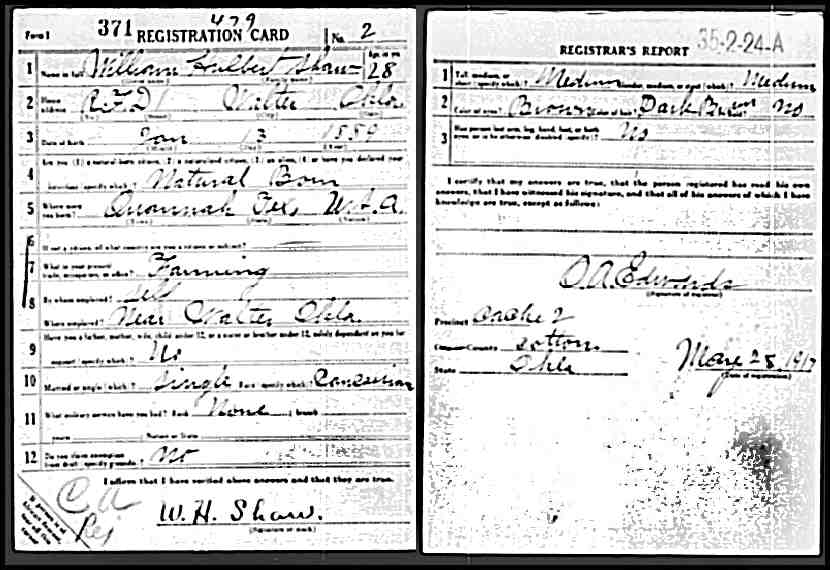 479
Form 1 371 REGISTRATION CARD No. 2
1 Name in full William Hulbert Shaw Age, in yrs. 28
2 Home address R.F.D. 1 Walter Okla
3 Date of birth Jan 13 1889
4 Are you (1) a natural born citizen, (2) a naturalized citizen, (3) an alien, (4) or have you declared your
intention (specify which)? Natural Born
5 Where were you born? Quannah Tex U.S.A.
6 If not a citizen, of what country are you a citizen or subject?
7 What is your present trade, occupation, or office? Farming
8 By whom employed? Self
Where employed? Near Walter Okla
9 Have you a father, mother, wife, child under 12, or a sister or brother under 12, solely dependent on you for
support (specify which)? No
10 Married or single (which)? Single Race (specify which)? Caucasian
11 What military service have you had? Rank None ; branch
years ; Nation or State
12 Do you claim exemption from draft (specify grounds)? No
I affirm that I have verified above answers and that they are true.
C A
W. H. Shaw.
(Signature or mark)
REGISTRAR'S REPORT 35-2-24-A
1 Tall, medium, or short (specify which)? Medium Slender, medium, or stout (which)? Medium
2 Color of eyes? Brown Color of hair? Dark Brown Bald? No
3 Has person lost arm, leg, hand, foot, or both eyes, or is he otherwise disabled (specify)? No
I certify that my answers are true, that the person registered has read his own
answers, that I have witnessed his signature, and that all of his answers of which I have
knowledge are true, except as follows:
O A Edwards
(Signature of registrar)
Precinct Cache 2
County Cotton
State Okla
May 28, 1917
(Date of registration)